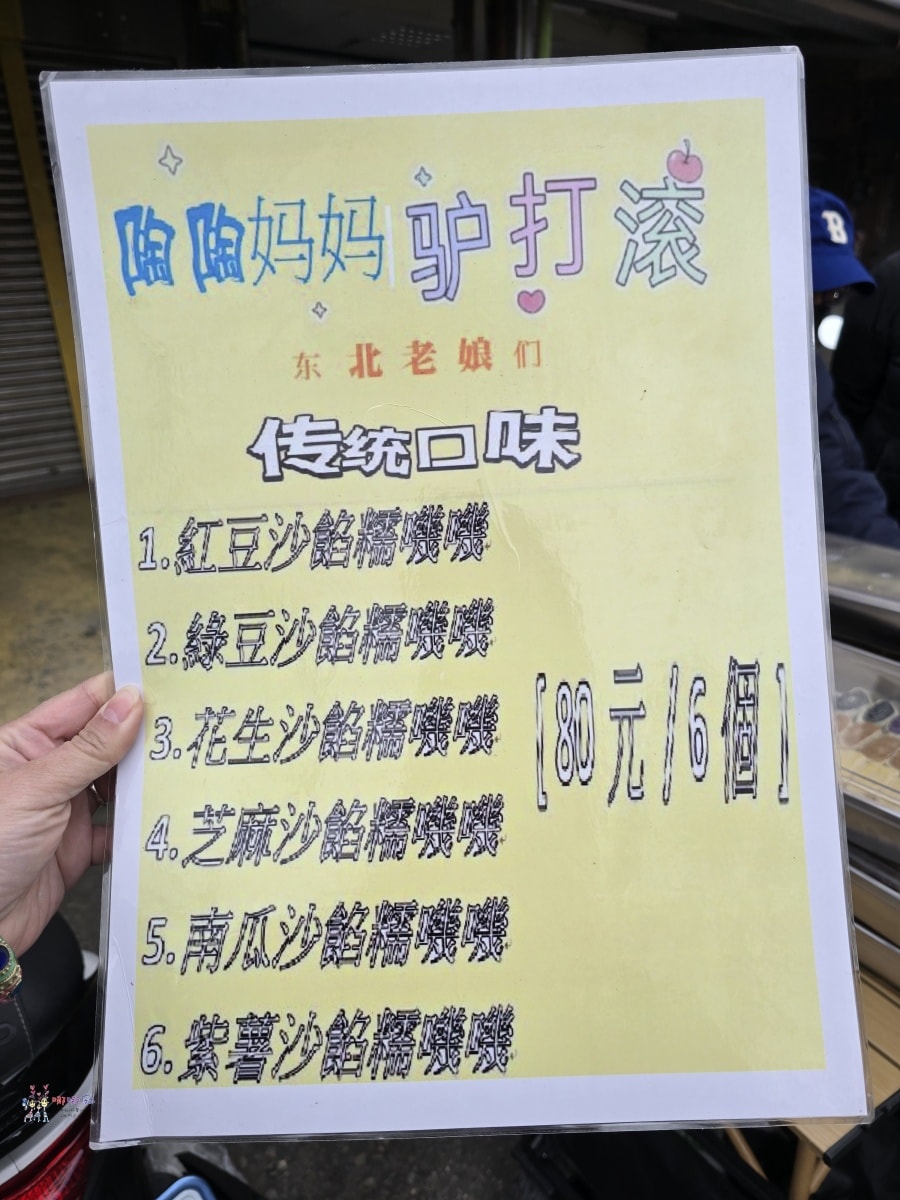 陶陶妈妈 驴打滚
东北老娘们
传统口味
1.紅豆沙餡糯嘰嘰
2.綠豆沙餡糯嘰嘰
3.花生沙餡糯嘰嘰
4.芝麻沙餡糯嘰嘰
5.南瓜沙餡糯嘰嘰
6.紫薯沙餡糯嘰嘰
[80元/6個]
B